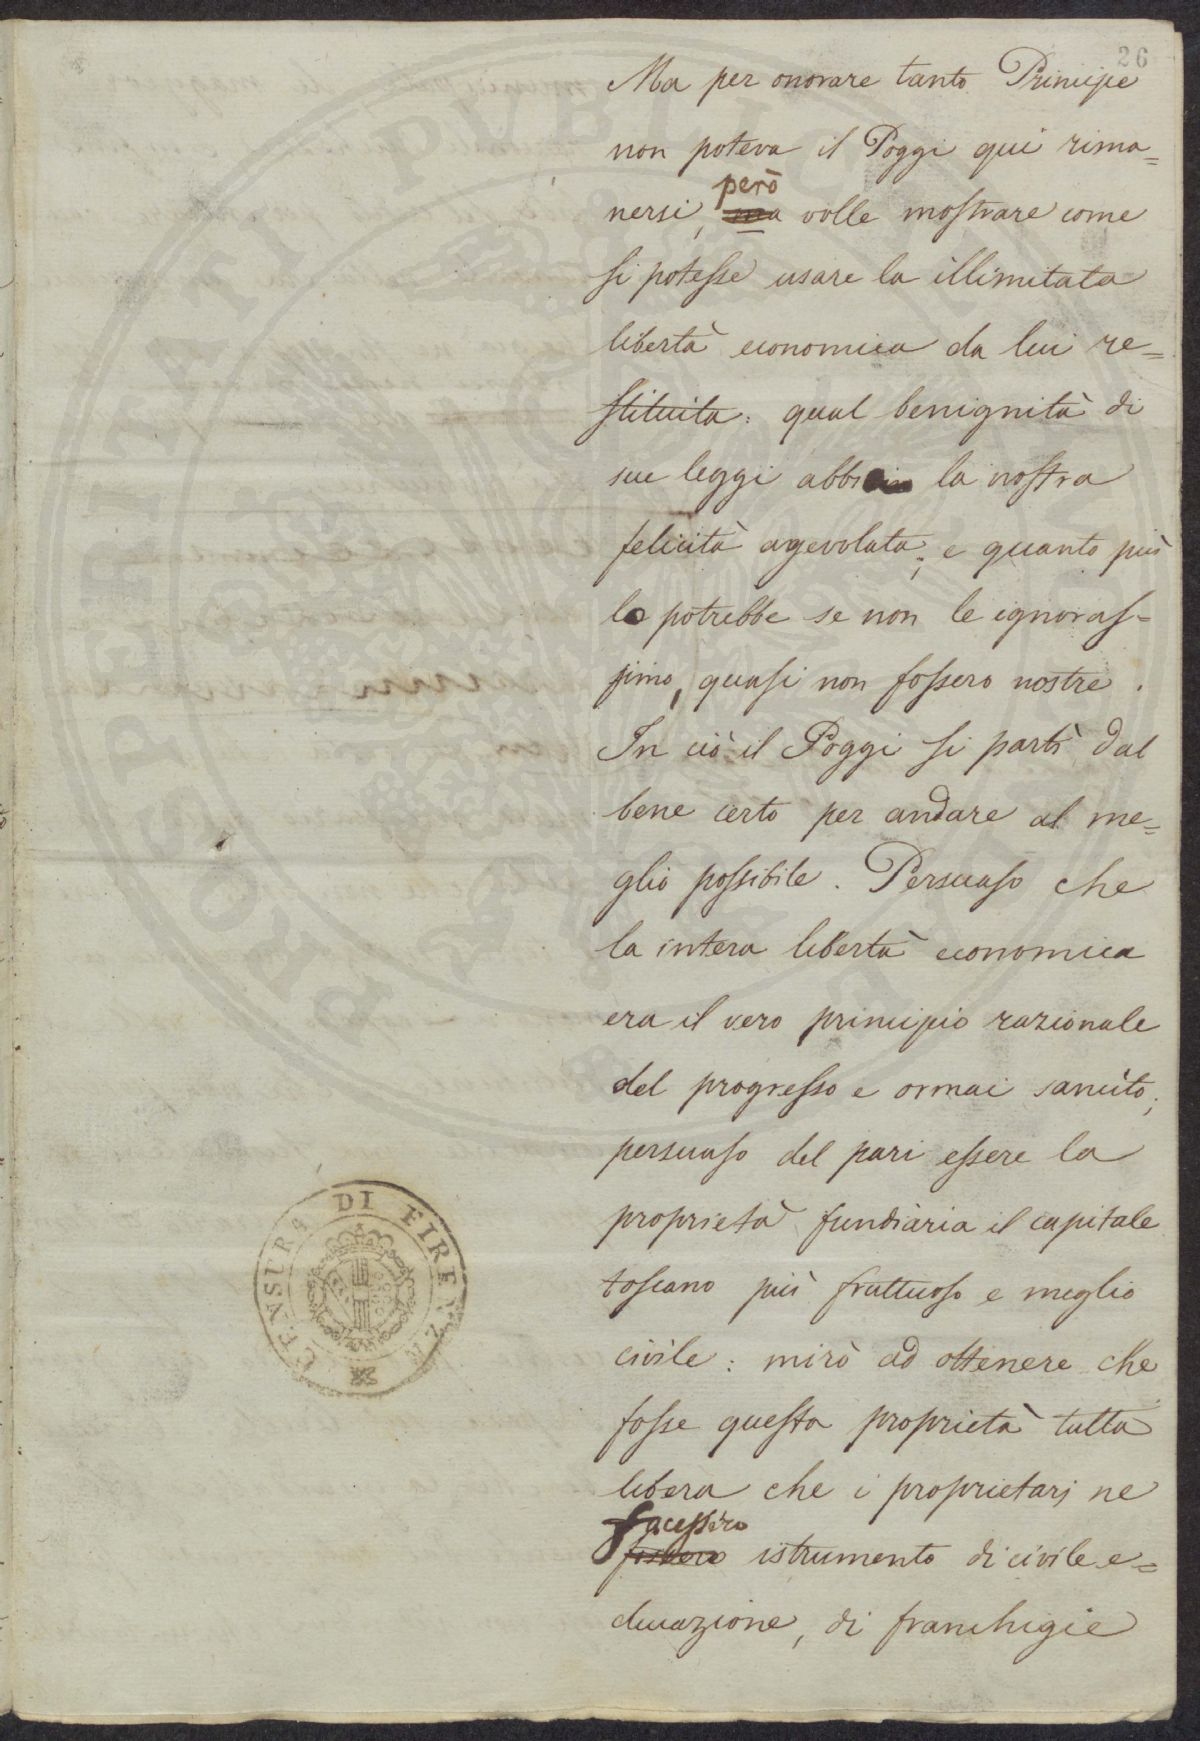 26
Ma per onorare tanto Principe
non poteva il Poggi qui rima=
però
nersi, ma volle mostrare come
si potesse usare la illimitata
libertà economica da lui re=
stituita: qual benignità di
sue leggi abbia la nostra
felicità agevolata; e quanto più
lo potrebbe se non le ignoras=
simo, quasi non fossero nostre.
In ciò il Poggi si partì dal
bene certo per andare al me=
glio possibile. Persuaso che
la intera libertà economica
era il vero principio razionale
del progresso e ormai sancito;
persuaso del pari essere la
proprietà fundiaria il capitale
toscano più fruttuoso e meglio
civile: mirò ad ottenere che
fosse questa proprietà tutta
libera che i proprietarj ne
facessero
istrumento di civile e=
ducazione, di franchigie
CENSURA DI FIRENZE